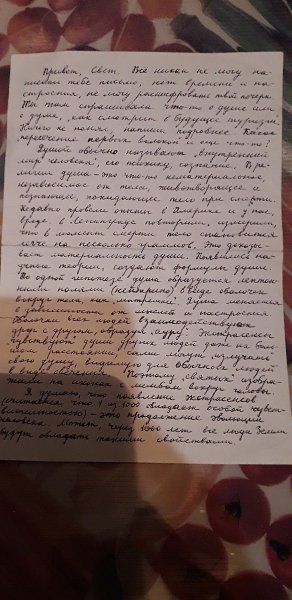 Привет, Свет. Всё никак не могу на-
писать тебе письмо, нет времени и на-
строения, не могу расшифровать твой почерк.
Ты там спрашивала что-то о душе или
о думе, "как смотрит в будущее туризм."
Ничего не понял, напиши подробнее. Какое
пересечение первых и ещё что-то?
Душой обычно называют "внутренний
мир человека", его психику, сознание. В ре-
лигии душа - это что-то нематериальное,
независимое от тела, животворящее и
познающее, покидающее тело при смерти.
Недавно провели опыты в Америке и у нас,
вроде в Ленинграде повторили, измерили,
что в момент смерти тело становится
легче на несколько граммов. Это доказы-
вает материальность души. Появились на-
учные теории, создают формулы души.
По одной из гипотез душа образуется
полями в виде оболочек
вокруг тела, как "матрёшка". Душа меняется
в зависимости от мыслей и настроения.
Оболочки всех людей взаимодействуют
друг с другом, образуя "ауру". Экстрасенсы
"чувствуют" души других людей даже на боль-
шом расстоянии, сами могут излучать
свою душу, видимую для обычных людей
в виде свечения. Поэтому святых изобра-
жали на иконах с сиянием вокруг головы.
Я думаю, что появление экстрасенсов
(считается, что 1 из 1000 обладает особой чувст-
вительностью) - это продолжение эволюции
человека. Может, через 1000 лет все люди Земли
будут обладать такими свойствами.